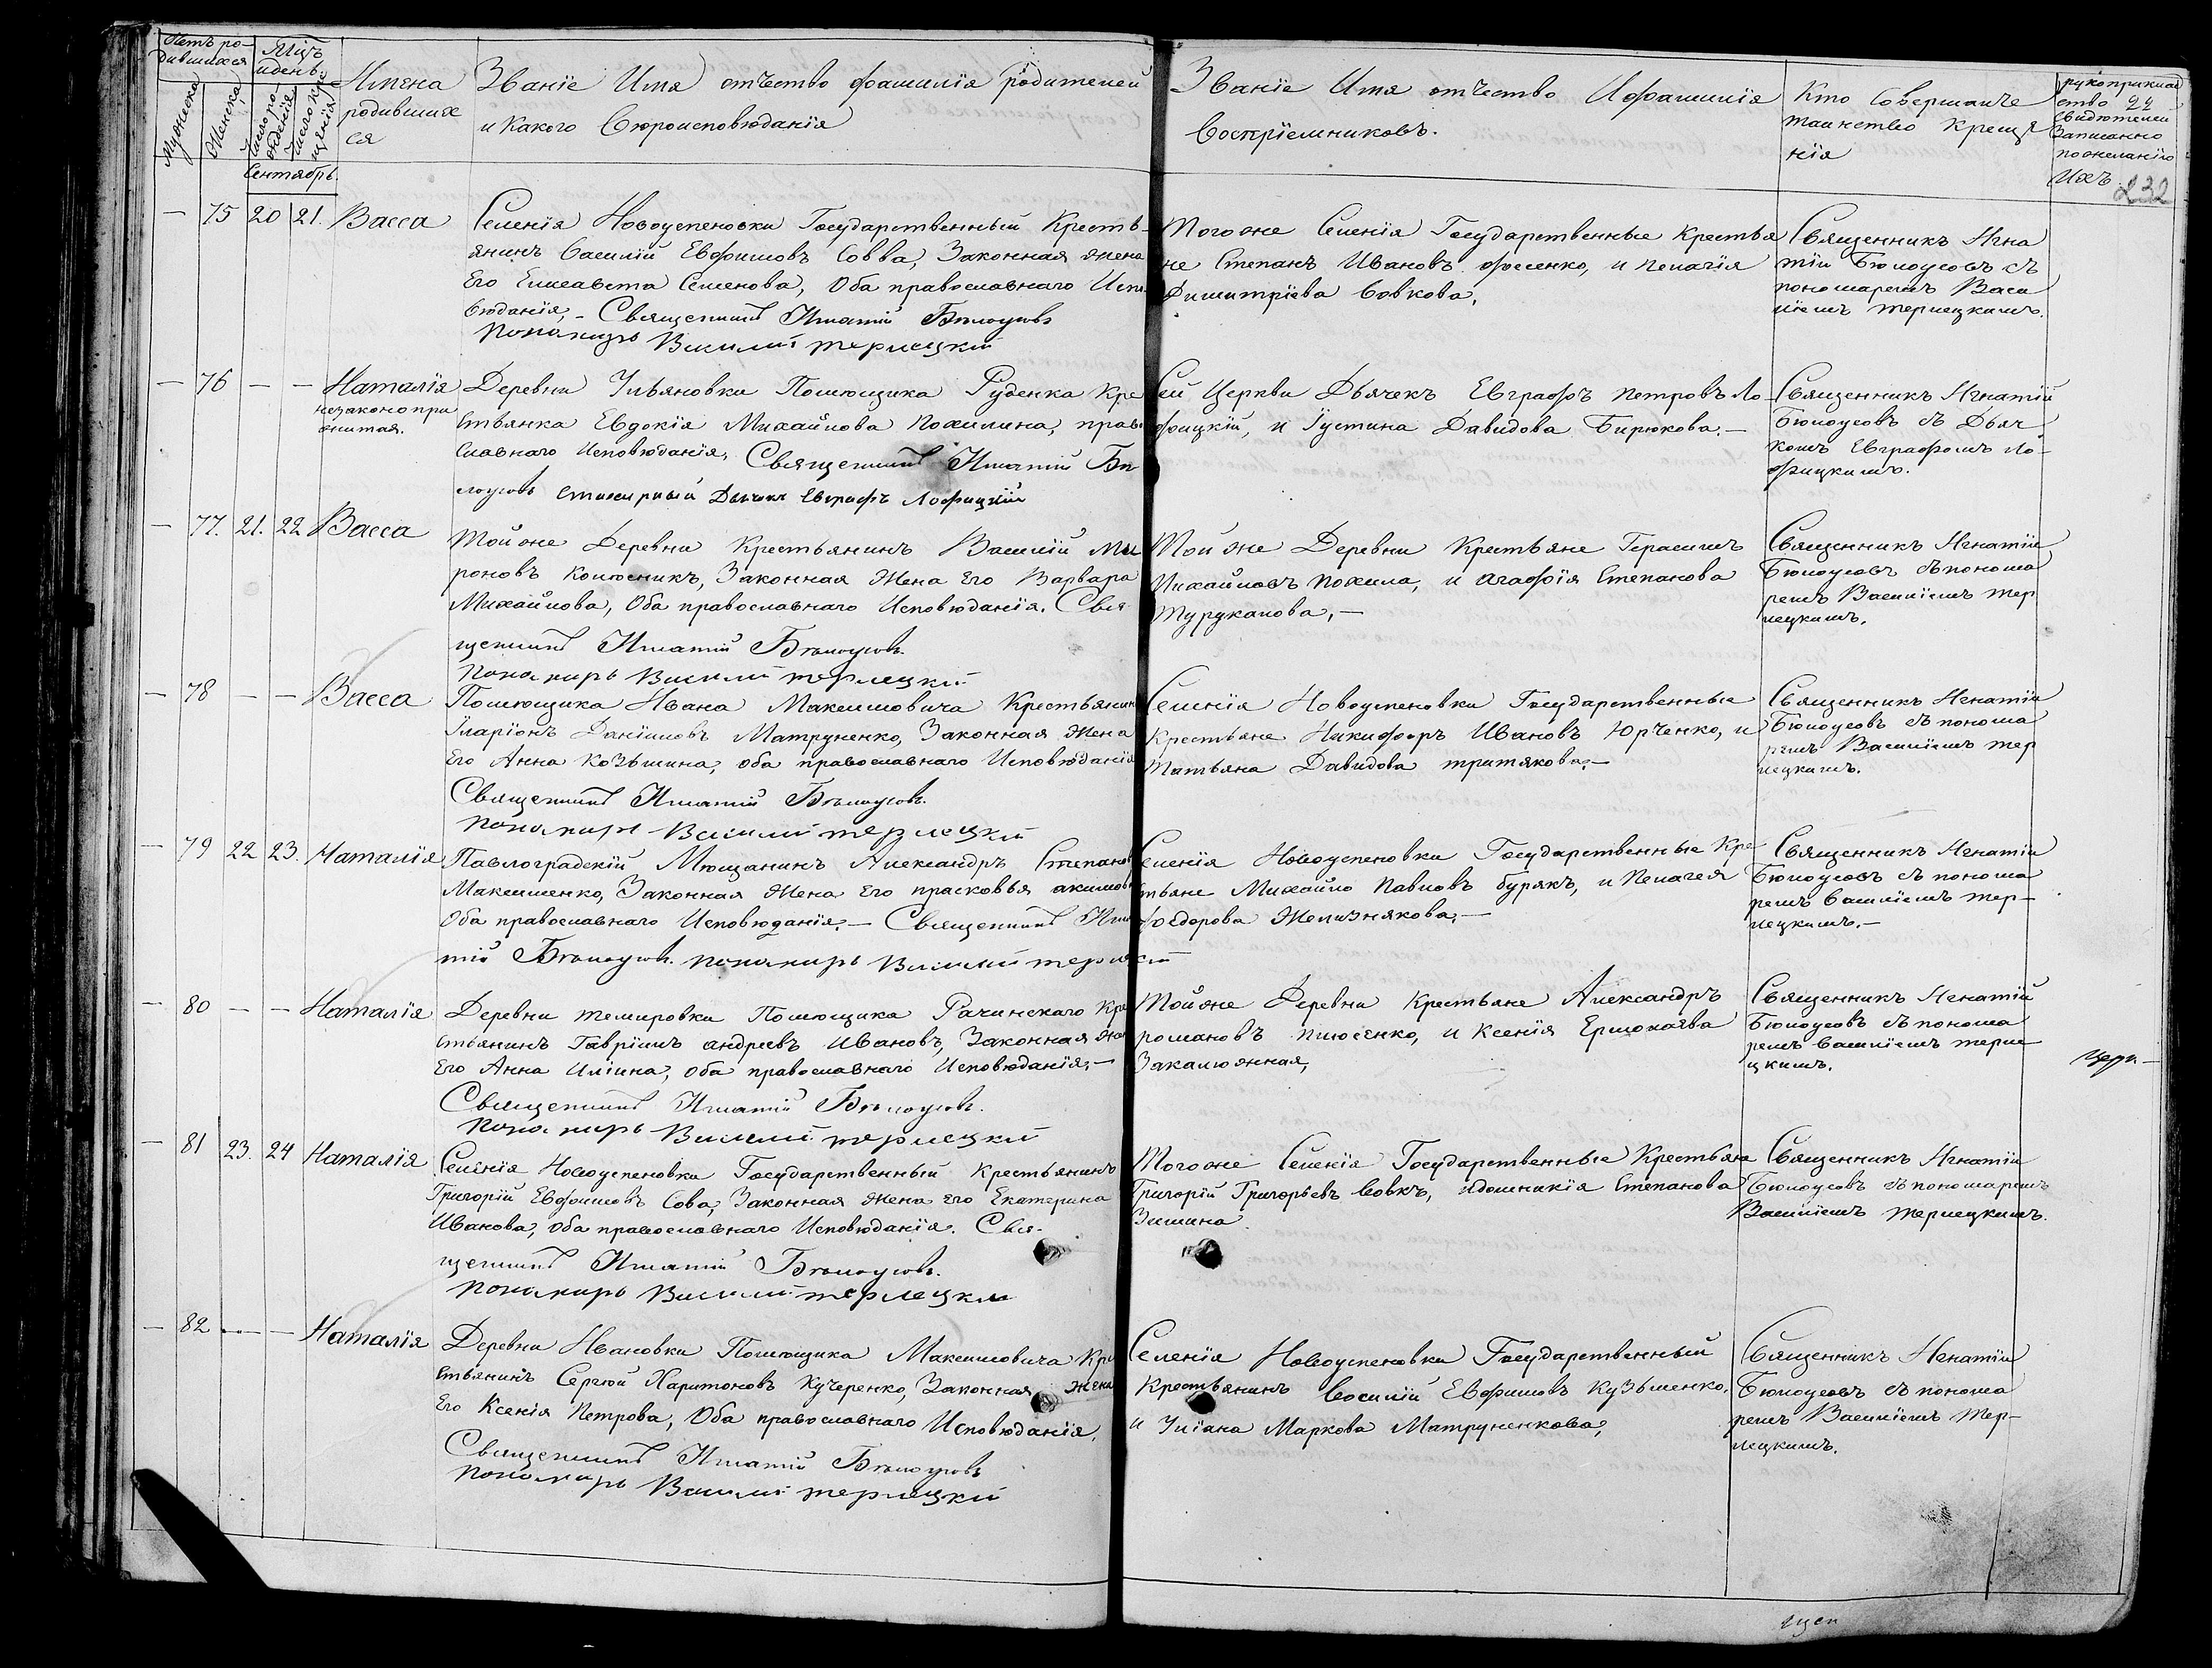 Счетъ ро-
дившихся
Мужеска
Женска
Мцъ
и день
Число ро-
жденія
Число кре
щенія
Сентябрь.
Имена
родивших
ся
Званіе Имя отъество фамилія родителей
и Какого Вѣроисповѣданія
Званіе Имя отъество И фамилія
Воспріемниковъ.
Кто Совершалъ
таинство Креще
нія
рукоприклад
ство
свидѣтелей
Записанно
по желанію
Ихъ
232
— 75 20 21. Васса
Селенія Новоуспеновки Государственный Кресть-
янинъ Василій Евфимовъ Совва, Законная жена
Его Елисавета Семенова, Оба православнаго Испо
вѣданія, - Священникъ Игнатій Бѣлоусовъ
Пономарь Василій терлецкій
Того же Селенія Государственные Крестья
не Степанъ Ивановъ фесенко, и пелагія
Димитріева Вовкова,
Священникъ Игна
тій Бѣлоусовъ съ
пономаремъ Васи
ліемъ терлецкимъ.
— 76 — — Наталія
незаконо при
житая.
Деревни Ульяновки Помѣщика Руденка Кре
стьянка Евдокія Михайлова Похилина, право
славнаго Исповѣданія, Священникъ Игнатій Бѣ
лоусовъ стихарный Дьячекъ Евграфъ Лофицкій
Сей Церкви Дьячекъ Евграфъ петровъ Ло-
фицкій, и Іустина Давидова Бирюкова. —
Священникъ Игнатій
Бѣлоусовъ съ Дьяч
комъ Евграфомъ Ло-
фицкимъ.
— 77. 21. 22 Васса
Той же Деревни Крестьянинъ Василій Ми
роновъ Колѣсникъ, Законная Жена Его Варвара
Михайлова, Оба православнаго Исповѣданія. Свя-
щенникъ Игнатій Бѣлоусовъ.
Пономарь Василій терлецкій
Той же Деревни Крестьяне Герасимъ
Михайловъ похила, и агафія Степанова
Турукалова, —
Священникъ Игнатій
Бѣлоусовъ съ понома
ремъ Василіемъ тер
лецкимъ.
— 78 — — Васса
Помѣщика Ивана Максимовича Крестьянинъ
Іларіонъ Даніиловъ Матруненко, Законная Жена
Его Анна Козьмина, оба православнаго Исповѣданія
Священникъ Игнатій Бѣлоусовъ.
Пономарь Василій терлецкій
Селенія Новоуспеновки Государственные
Крестьяне Никифоръ Ивановъ Юрченко, и
Татьяна Давидова тритякова. —
Священникъ Игнатій
Бѣлоусовъ съ понома
ремъ Василіемъ тер
лецкимъ.
— 79 22 23. Наталія
Павлоградскій Мѣщанинъ Александръ Степановъ
Максименко, Законная Жена Его прасковья акимова
Оба православнаго Исповѣданія. — Священникъ Игна
тій Бѣлоусовъ. Пономарь Василій терлецкій
Селенія Новоуспеновки Государственные Кре
стьяне Михайло Павловъ бурякъ, и Пелагея
федорова Желизнякова, —
Священникъ Игнатій
Бѣлоусовъ съ понома
ремъ Василіемъ тер-
лецкимъ. —
— 80 — — Наталія
Деревни темировки Помѣщика Рачинскаго Кре
стьянинъ Гавріилъ андреевъ Ивановъ, Законная Жена
Его Анна Иліина, оба православнаго Исповѣданія. —
Священникъ Игнатій Бѣлоусовъ.
Пономарь Василій терлецкій
Той же Деревни Крестьяне Александръ
романовъ и Ксенія Ермолаева
Закалюжная,
Священникъ Игнатій
Бѣлоусовъ съ понома
ремъ Василіемъ терле
цкимъ.
— 81 23. 24 Наталія
Селенія Новоуспеновка Государственный Крестьянинъ
Григорій Евфимовъ Сова, Законная Жена его Екатерина
Иванова, оба православнаго Исповѣданія. Свя-
щенникъ Игнатій Бѣлоусовъ.
Пономарь Василій терлецкій
Того же Селенія Государственные Крестьяне
Григорій Григорьевъ Вовкъ, идомникія Степанова
Зимина.
Священникъ Игнатій
Бѣлоусовъ съ пономаремъ
Василіемъ терлецкимъ.
— 82 — — Наталія
Деревни Ивановки Помѣщика Максимовича Кре
стьянинъ Сергѣй Харитоновъ Кучеренко, Законная Жена
Его Ксенія Петрова, Оба православнаго Исповѣданія.
Священникъ Игнатій Бѣлоусовъ
Пономарь Василій терлецкій
Селенія Новоуспеновки Государственный
Крестьянинъ Василій Евфимовъ Кузьменко,
и Уліана Маркова Матруненкова,
Священникъ Игнатій
Бѣлоусовъ съ понома
ремъ Василіемъ Тер-
лецкимъ.